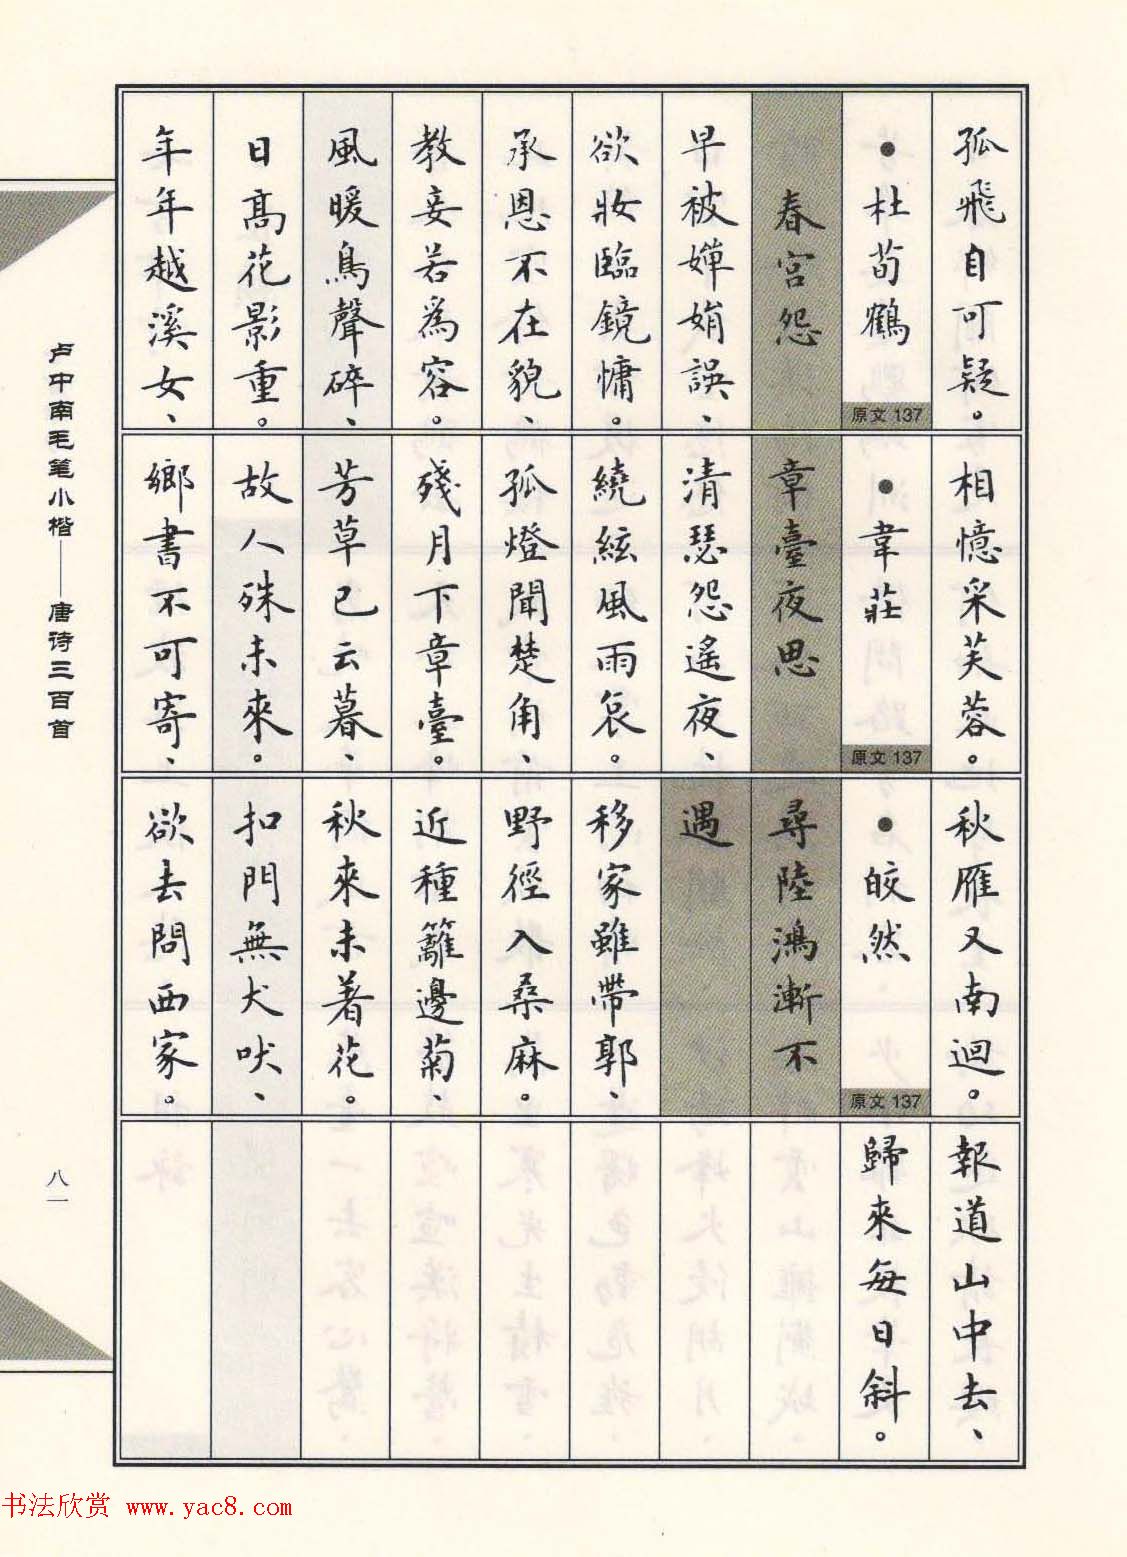 孤飛自可疑。
●杜荀鶴
原文 137
春宮怨
早被嬋娟誤、
欲妝臨鏡慵。
承恩不在貌、
教妾若為容。
風暖鳥聲碎、
日高花影重。
年年越溪女、
相憶采芙蓉。
●韋莊
原文 137
章臺夜思
清瑟怨遙夜、
繞絃風雨哀。
孤燈聞楚角、
殘月下章臺。
芳草已云暮、
故人殊未來。
鄉書不可寄、
秋雁又南迴。
●皎然
原文 137
尋陸鴻漸不
遇
移家雖帶郭、
野徑入桑麻。
近種籬邊菊、
秋來未著花。
扣門無犬吠、
欲去問西家。
報道山中去、
歸來每日斜。
卢中南毛笔小楷——唐诗三百首
八一
书法欣赏 www.yac8.com